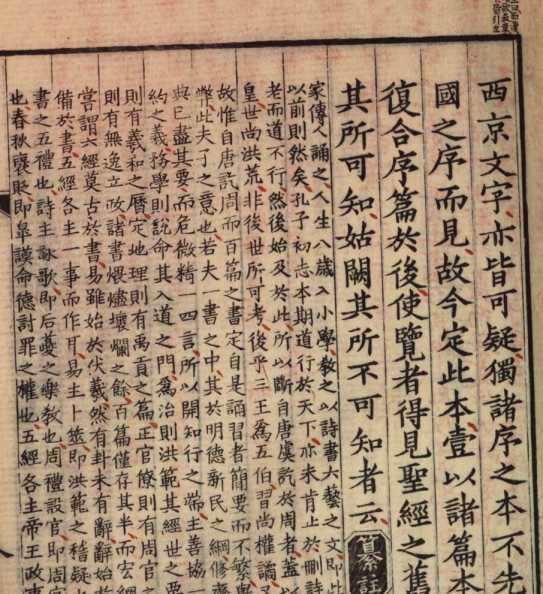 西京文字亦皆可疑獨諸序之本不先
國之序而見故今定此本壹以諸篇本
復合序篇於後使覽者得見聖經之舊
其所可知姑闕其所不可知者云纂註
家傳人誦之人生八歲入小學教之以詩書六藝之文即此
以前則然矣孔子初志本期道行於天下亦未肯止於刪詩
老而道不行然後始及於此所以斷自唐虞訖於周者蓋以
皇世尚洪荒非後世所可考後乎三王爲五伯習尚權譎又
故惟自唐訖周而百篇之書定自是誦習者簡要而不繁
弊此夫子之意也若夫一書之中其於明德新民之綱修齊
與已盡其要而危微精一四言所以開知行之端主善協一
約之義務學則說命其入道之門爲治則洪範其經世之要
則有羲和之曆定地理則有禹貢之篇正官僚則有周官之
則有無逸立政諸書煨燼壞爛之餘百篇僅存其半而宏綱
嘗謂六經莫古於書易雖始於伏羲然有卦未有辭辭始於
備於書五經各主一事而作耳易主卜筮即洪範之稽疑也
書之五禮也詩主詠歌即后夔之樂教也周禮設官即周官
也春秋褒貶即皐謨命德討罪之權也五經各主帝王政事